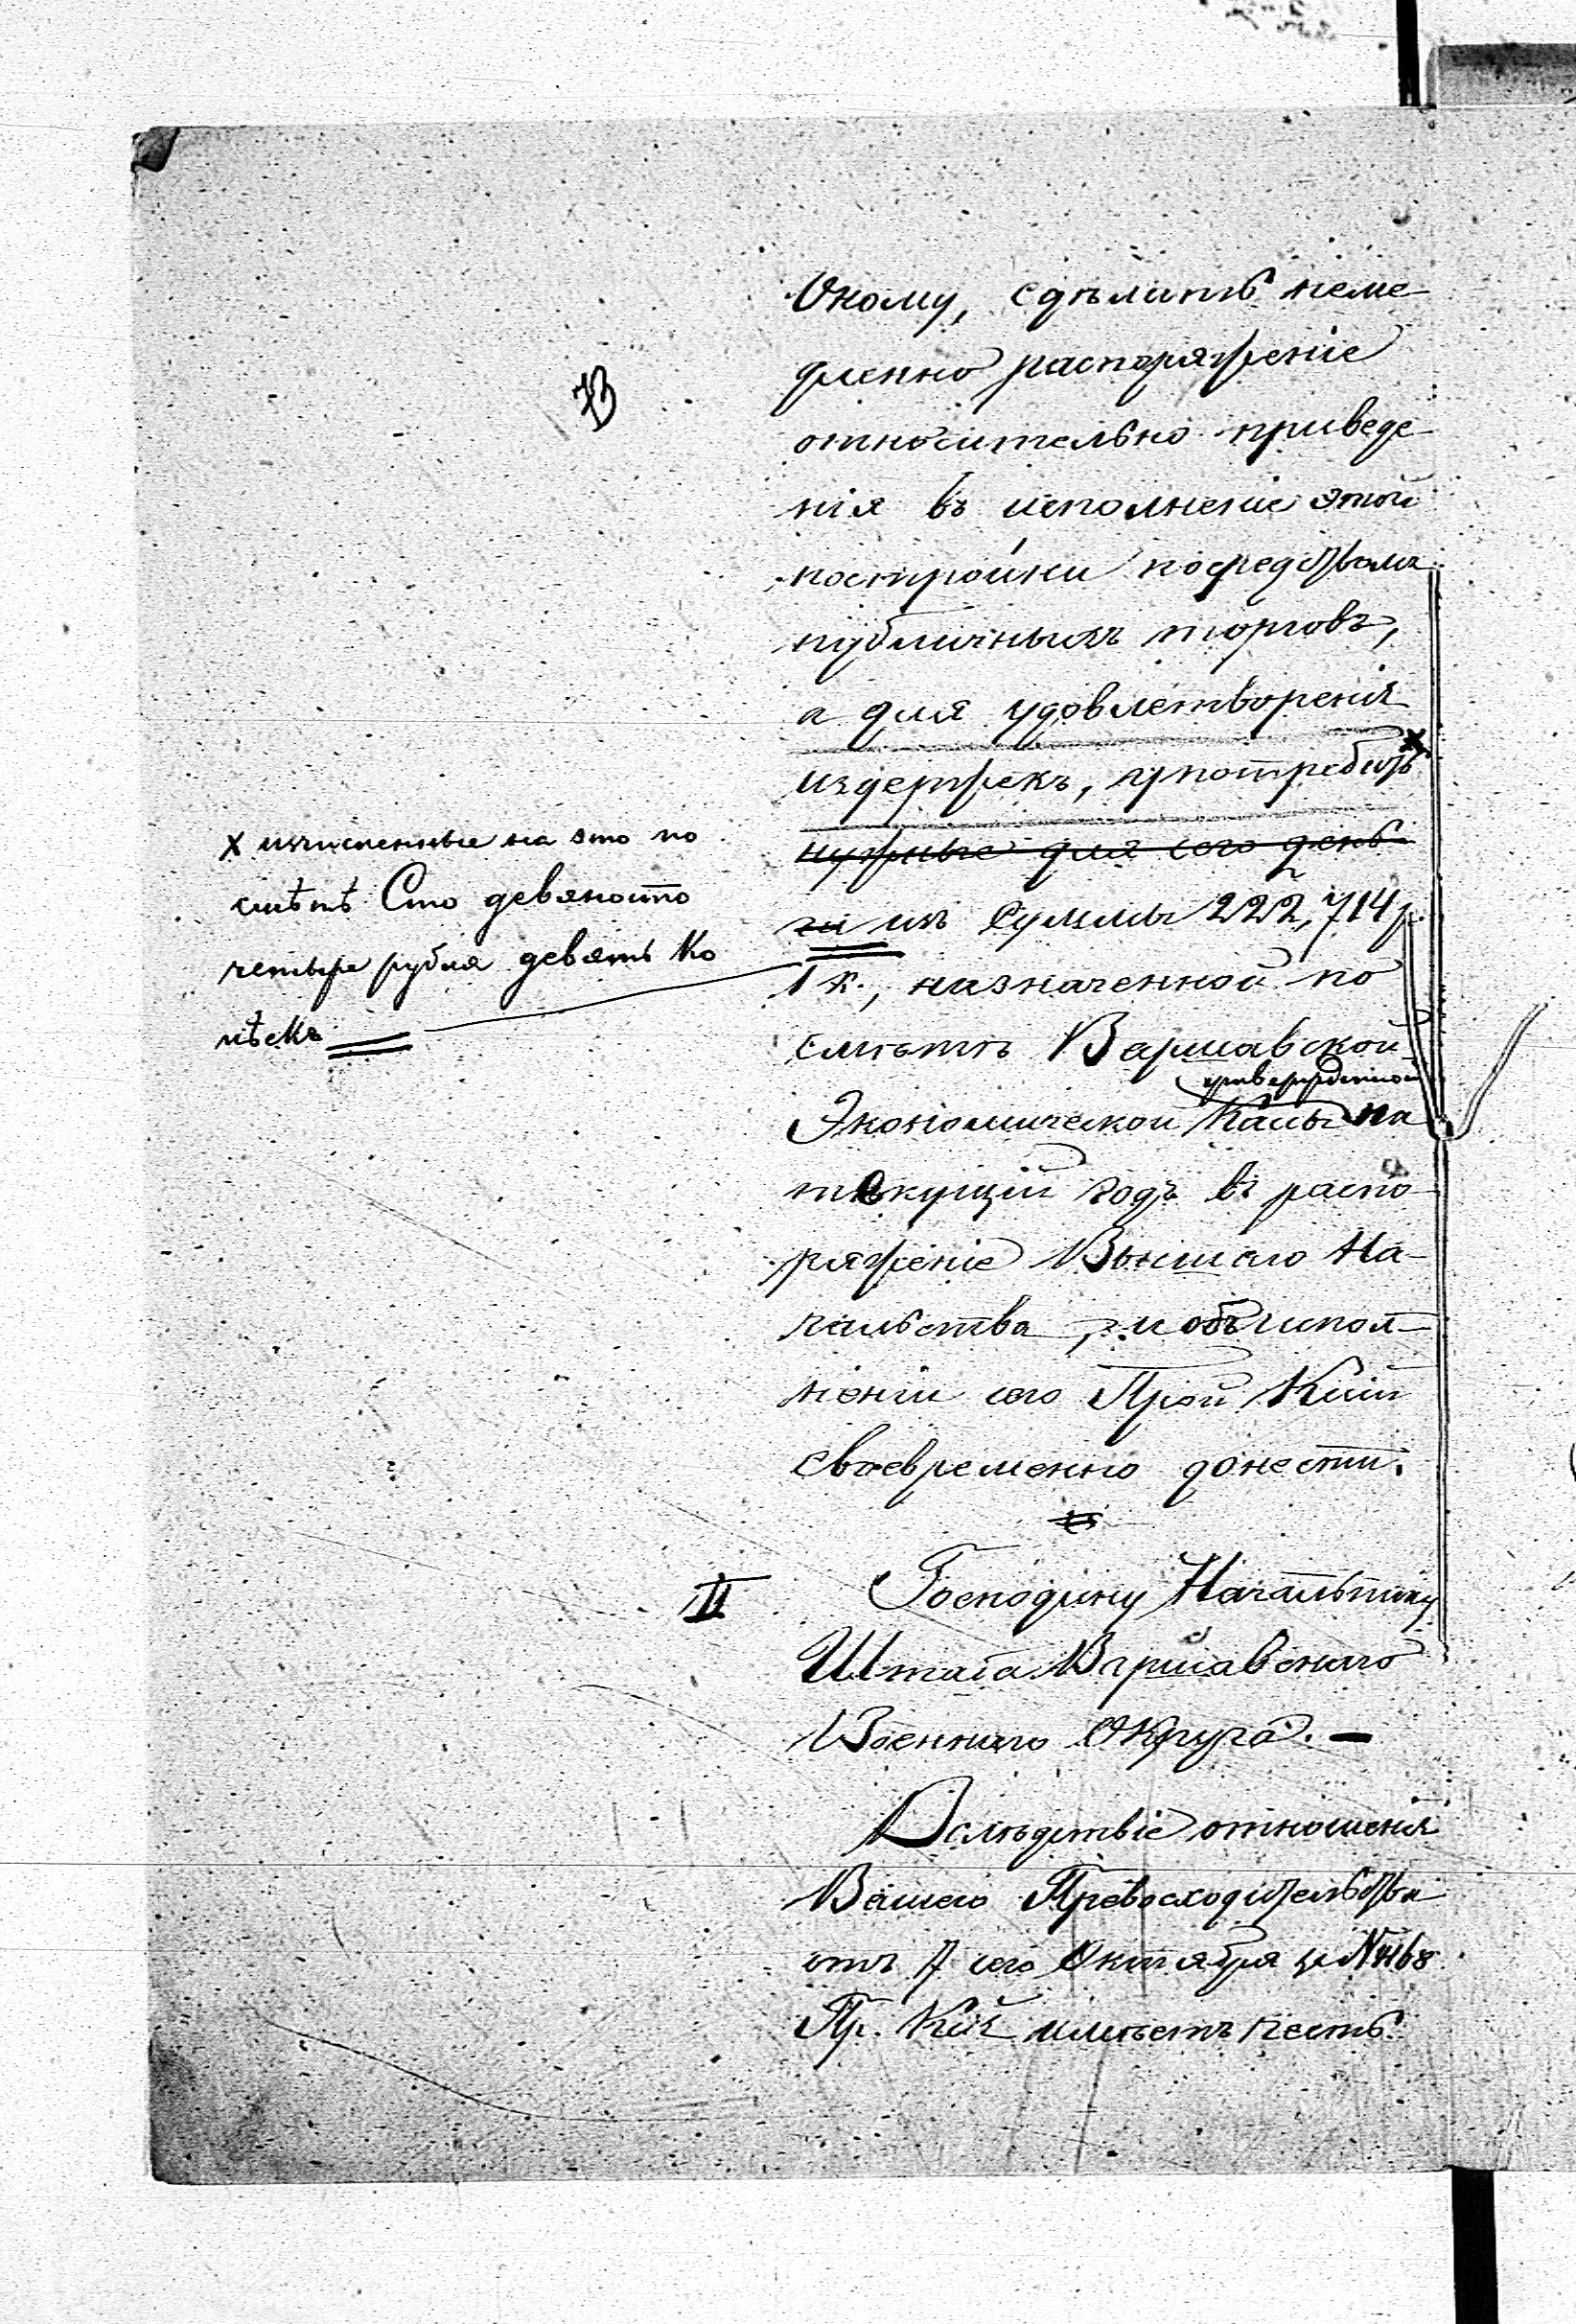 Оному, сдѣлать неме-
дленно распоряженіе
относительно приведе-
нія въ исполненіе этой
постройки посредствомъ
публичныхъ торговъ,
а для удовлетворенія
издержекъ, употребить х
нужные для сего день-
ги изъ суммы 222,714 р.
1 к., назначенной по
смѣтѣ Варшавской
утвержденной
Экономической Кассы на
текущій годъ въ распо-
ряженіе Высшаго На-
чальства, и объ испол-
неніи сего Прой Кіи
своевременно донести.
х изчисленные на это по
смѣтѣ Сто девяносто
четыре рубля девять Ко
пѣекъ
II
Господину Начальнику
Штаба Варшавскаго
Военнаго Округа. —
Вслѣдствіе отношенія
Вашего Превосходительства
отъ 7 сего Октября за №
Пр. Кія имѣетъ честь